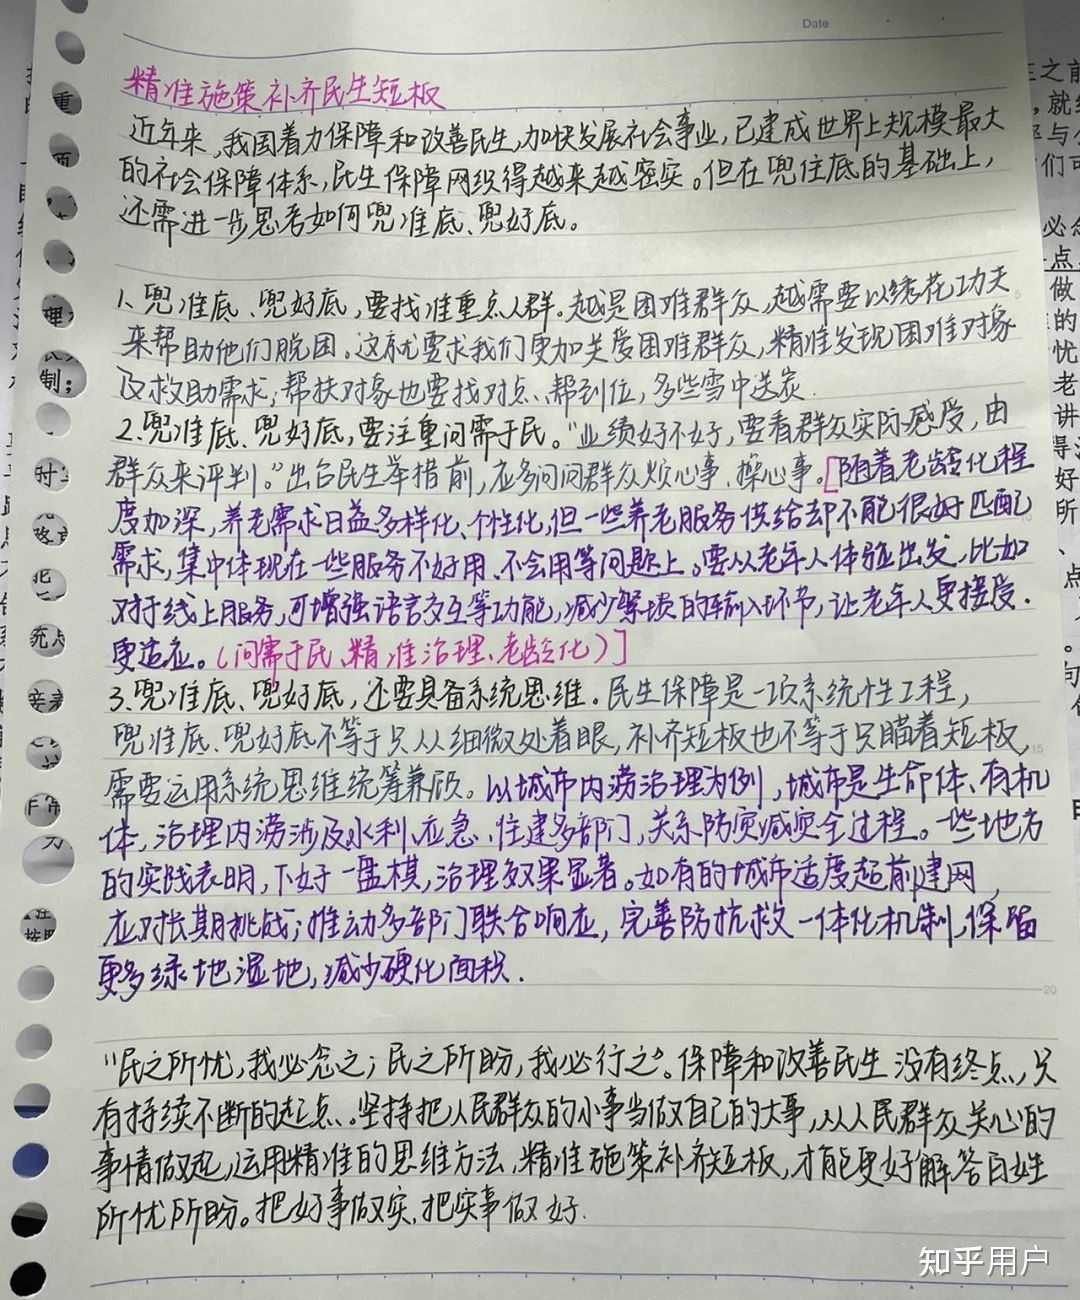 Date
精准施策补齐民生短板
近年来,我国着力保障和改善民生,加快发展社会事业,已建成世界上规模最大
的社会保障体系,民生保障网织得越来越密实。但在兜住底的基础上,
还需进一步思考如何兜准底、兜好底。
1、兜准底、兜好底,要找准重点人群。越是困难群众,越需要以绣花功夫
来帮助他们脱困。这就要求我们更加关爱困难群众,精准发现困难对象
及救助需求;帮扶对象也要找对点、帮到位,多些雪中送炭.
2.兜准底、兜好底,要注重问需于民。“业绩好不好,要看群众实际感受,由
群众来评判。”出台民生举措前,应多问问群众烦心事、操心事。[随着老龄化程
度加深,养老需求日益多样化、个性化,但一些养老服务供给却不能很好匹配
需求,集中体现在一些服务不好用、不会用等问题上。要从老年人体验出发,比如
对于线上服务,可增强语言交互等功能,减少繁琐的输入环节,让老年人更接受.
更适应。(问需于民、精准治理、老龄化)]
3.兜准底、兜好底,还要具备系统思维。民生保障是一项系统性工程,
兜准底、兜好底不等于只从细微处着眼,补齐短板也不等于只瞄着短板,
需要运用系统思维统筹兼顾。以城市内涝治理为例,城市是生命体、有机
体,治理内涝涉及水利、应急、住建多部门,关系防灾减灾全过程。一些地方
的实践表明,下好一盘棋,治理效果显著。如有的城市适度超前建网,
应对长期挑战;推动多部门联合响应,完善防抗救一体化机制,保留
更多绿地湿地,减少硬化面积.
“民之所忧,我必念之;民之所盼,我必行之”。保障和改善民生没有终点,只
有持续不断的起点。坚持把人民群众的小事当做自己的大事,从人民群众关心的
事情做起,运用精准的思维方法,精准施策补齐短板,才能更好解答百姓
所忧所盼。把好事做实,把实事做好.
知乎用户